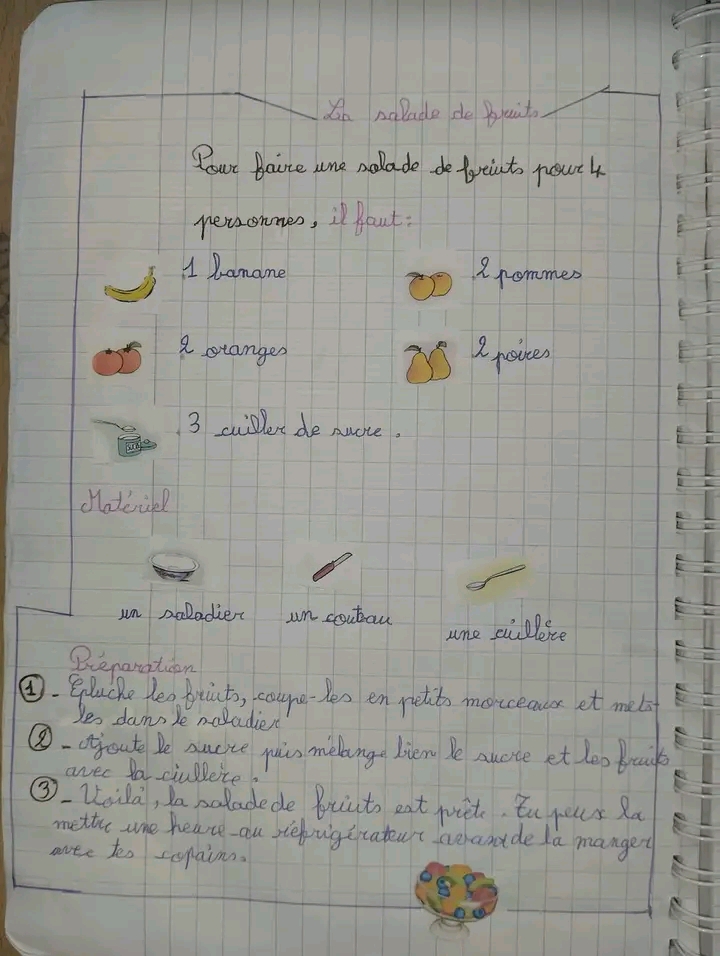 La salade de fruits
Pour faire une salade de friuts pour 4
personnes, il faut:
1 banane
2 pommes
2 oranges
2 poires
3 cuiller de sucre.
Matériel
un saladier
un couteau
une cuillère
Préparation
1 - Epluche les fruits, coupe-les en petits morceaux et mets-
les dans le saladier
2 - Ajoute le sucre puis mélange bien le sucre et les fruits
avec la ciullère.
3 - Voilà, la salade de friuts est prête. Tu peux la
mettre une heure au réfrigérateur avant de la manger
avec tes copains.